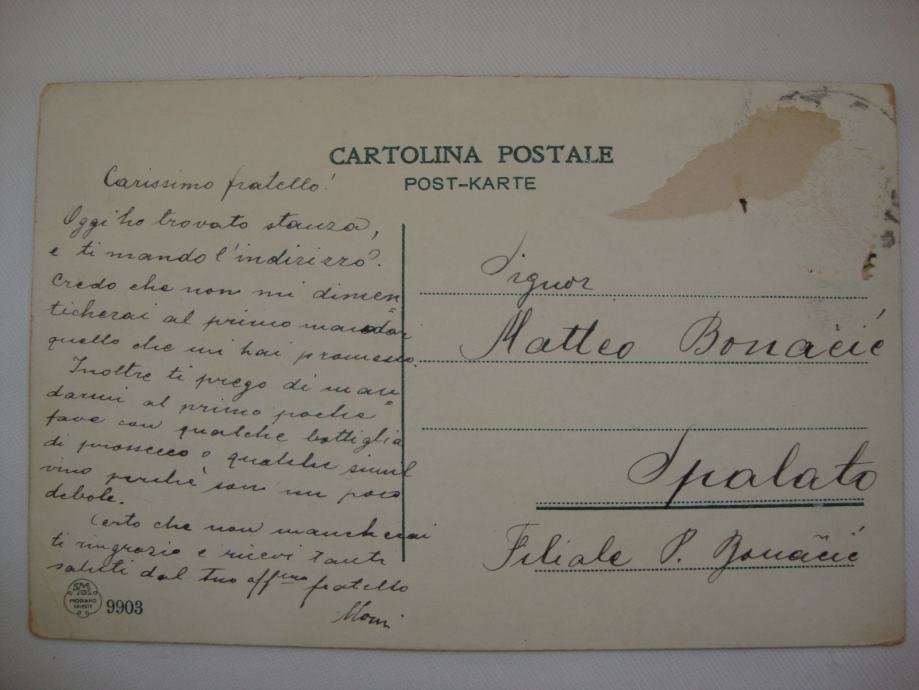 CARTOLINA POSTALE
POST-KARTE
Carissimo fratello!
Oggi ho trovato stanza,
e ti mando l'indirizzo.
Credo che non mi dimen
ticherai al primo mandar
quello che mi hai promesso.
Inoltre ti prego di man
darmi al primo poche
fave con qualche bottiglia
di prosecco o qualche simil
vino perchè son un poco
debole.
Certo che non mancherai
ti ringrazio e ricevi tanti
saluti dal tuo affmo fratello
Signor
Matteo Bonačić
Spalato
Filiale P. Bonačić
MODIANO
TRIESTE
9903